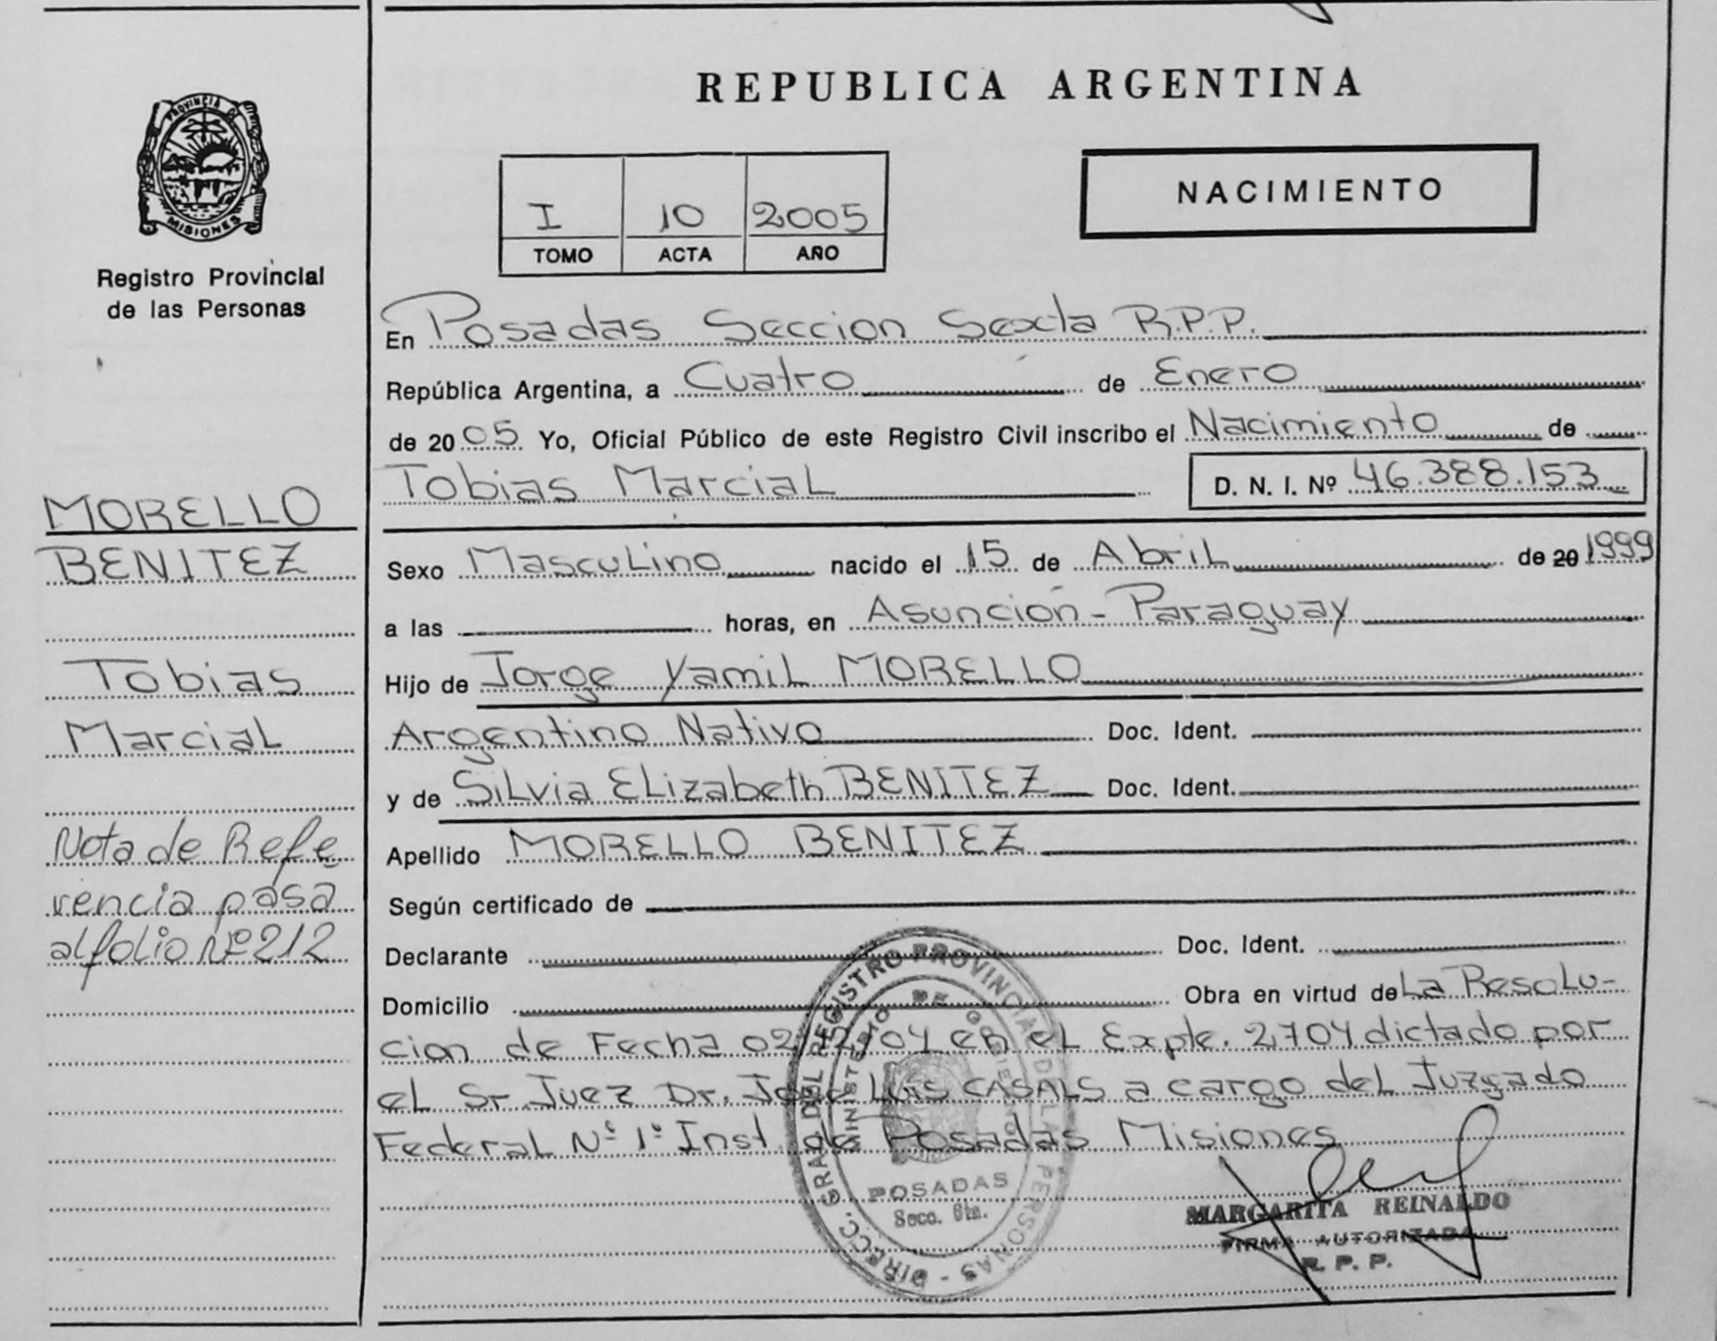 PROVINCIA DE
MISIONES
Registro Provincial
de las Personas
MORELLO
BENITEZ
Tobias
Marcial
Nota de Refe
rencia pasa
al folio Nº 212
REPUBLICA ARGENTINA
I 10 2005
TOMO ACTA AÑO
NACIMIENTO
En Posadas Seccion Sexta R.P.P.
República Argentina, a Cuatro de Enero
de 2005 Yo, Oficial Público de este Registro Civil inscribo el Nacimiento de
Tobias Marcial D. N. I. Nº 46.388.153
Sexo Masculino nacido el 15 de Abril de 20 1999
a las horas, en Asuncion - Paraguay
Hijo de Jorge Yamil MORELLO
Argentino Nativo Doc. Ident.
y de Silvia Elizabeth BENITEZ Doc. Ident.
Apellido MORELLO BENITEZ
Según certificado de
Declarante Doc. Ident.
Domicilio Obra en virtud de La Resolu-
cion de Fecha 02/12/04 en el Expte. 2,704 dictado por
el Sr. Juez Dr. Jose Luis CASALS a cargo del Juzgado
Federal Nº 1º Inst. de Posadas Misiones
DIRECC. GRAL DEL REGISTRO PROVINCIAL DE LAS PERSONAS
MINISTERIO DE GOBIERNO
POSADAS
Secc. 6ta.
MARGARITA REINALDO
FIRMA AUTORIZADA
R. P. P.